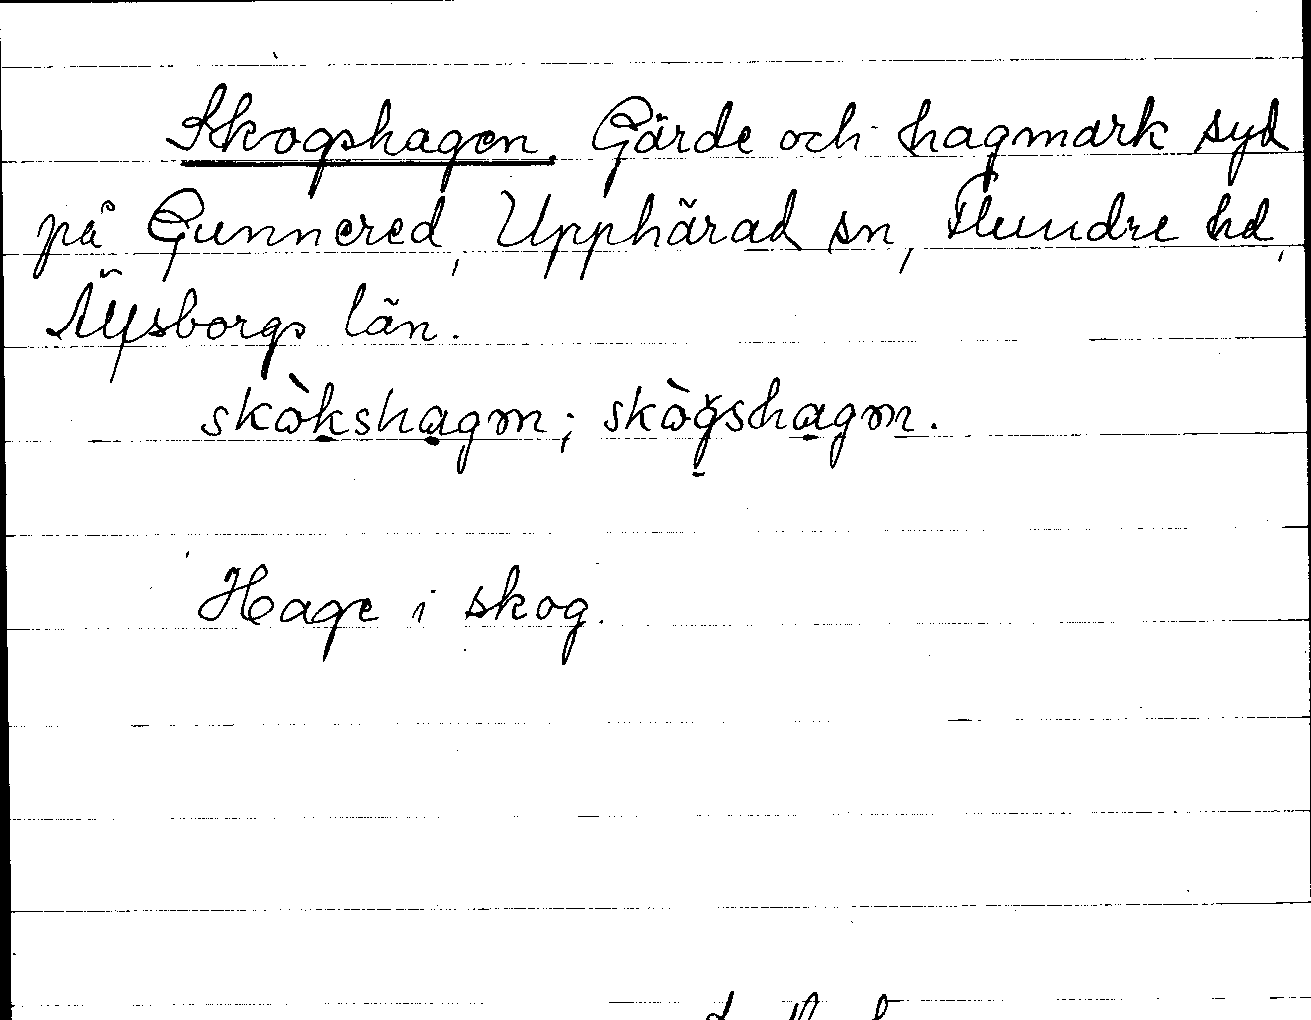 Skogshagen. Gärde och hagmark syd
på Gunnered, Upphärad sn, Flundre hd,
Älvsborgs län.
skòkshagən; skòǧshagən.
Hage i skog.